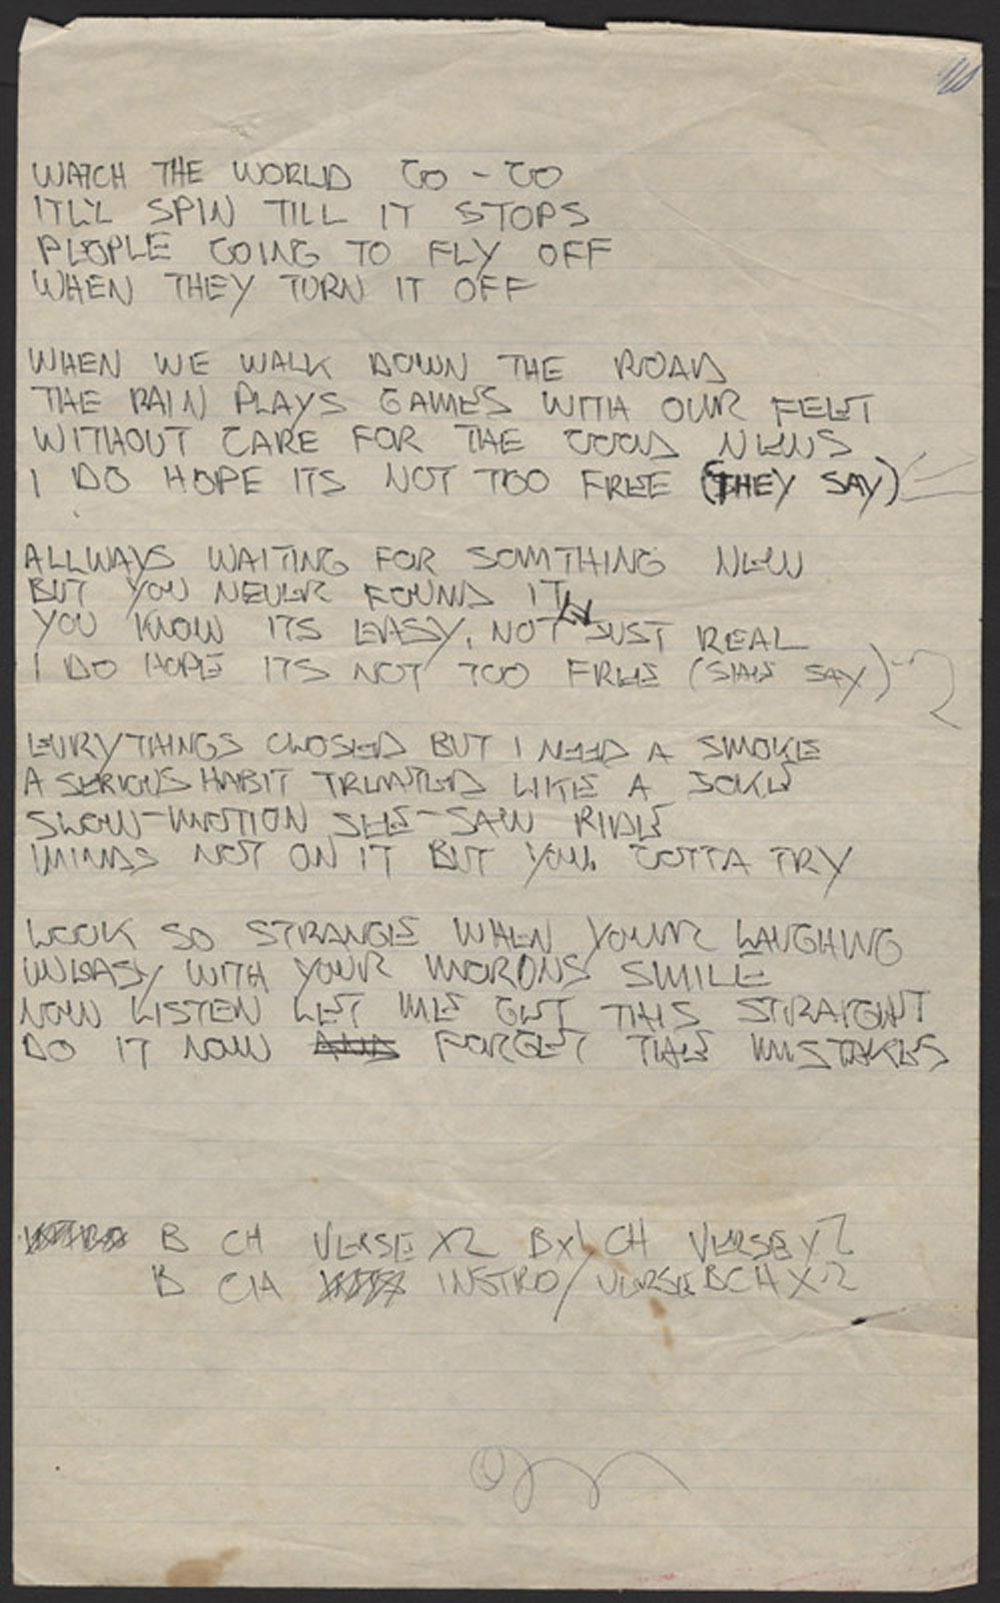 WATCH THE WORLD GO-GO
IT'LL SPIN TILL IT STOPS
PEOPLE GOING TO FLY OFF
WHEN THEY TURN IT OFF
WHEN WE WALK DOWN THE ROAD
THE RAIN PLAYS GAMES WITH OUR FEET
WITHOUT CARE FOR THE GOOD NEWS
I DO HOPE ITS NOT TOO FREE (THEY SAY)
ALLWAYS WAITING FOR SOMTHING NEW
BUT YOU NEVER FOUND IT
YOU KNOW ITS EASY, NOT JUST REAL
I DO HOPE ITS NOT TOO FREE (SHE SAY)
EVRYTHINGS CLOSED BUT I NEED A SMOKE
A SERIOUS HABIT TREATED LIKE A JOKE
SLOW-MOTION SEE-SAW RIDE
MINDS NOT ON IT BUT YOU GOTTA TRY
LOOK SO STRANGE WHEN YOUR LAUGHING
UNEASY WITH YOUR MORONS SMILE
NOW LISTEN LET ME GET THIS STRAIGHT
DO IT NOW AND FORGET THE MISTAKES
B CH VERSE X2 BX1 CH VERSE X2
B CH INSTRO/VERSE BCH X2